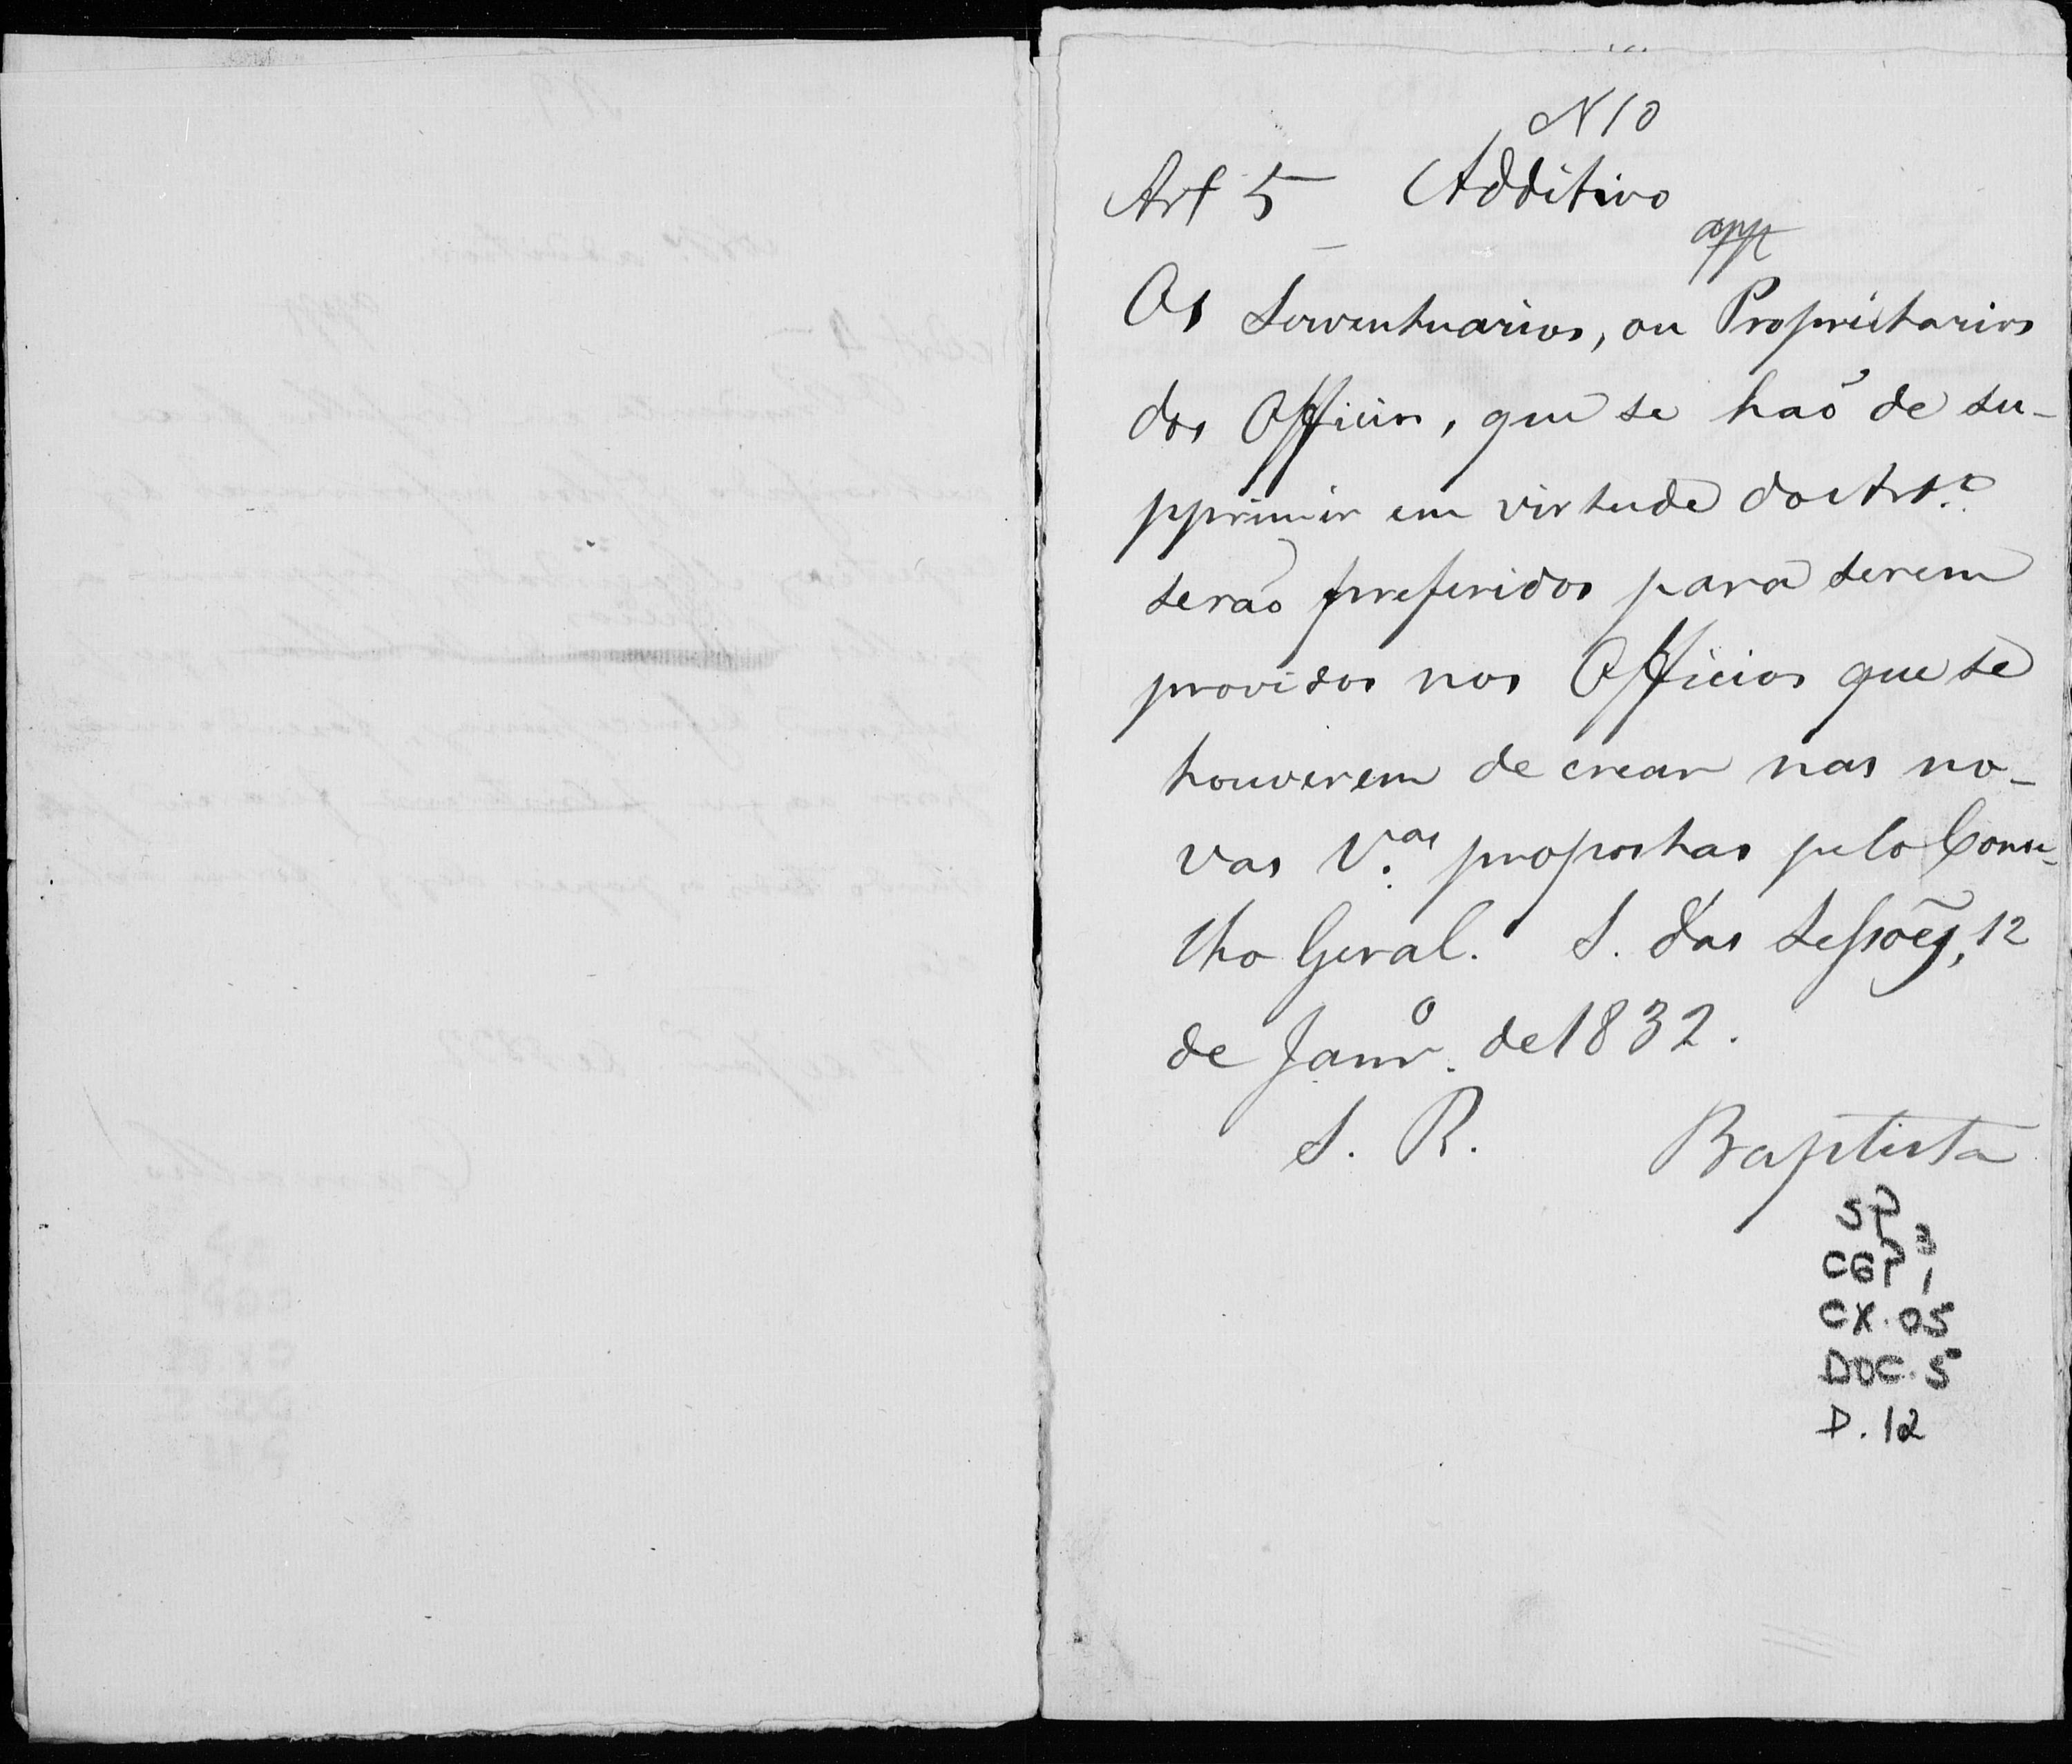 N 10
Art 5 Additivo
app
Os Serventuarios, ou Proprietarios
dos Officios, que se haõ de su-
pprimir em virtude do Art.º
seraõ preferidos para serem
providos nos Officios que se
houverem de crear nas no-
vas V.as propostas pelo Conse-
lho Geral. S. das Sessões, 12
de Janr.º de 1832.
S. R. Baptista
SP
CGP 3
1
CX. 05
DOC. 5
D. 12